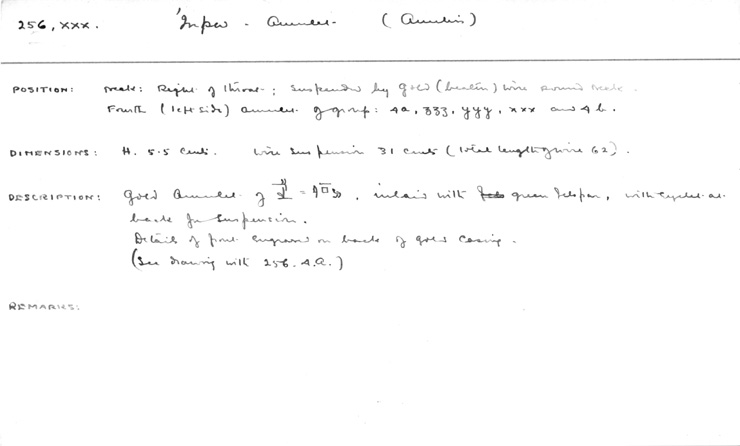 256, xxx. 'Inpw - Amulet - (Anubis)
POSITION: Neck: Right of throat; suspended by gold (beaten) wire around neck.
Fourth (left side) amulet of group: 4a, zzz, yyy, xxx and 4b.
DIMENSIONS: H. 5.5 cents. Wire suspension 31 cents (total length of wire 62).
DESCRIPTION: Gold Amulet of = , inlaid with green felspar, with eyelet at
back for suspension.
Details of front engraved on back of gold casing.
(See drawing with 256. 4.A.)
REMARKS: